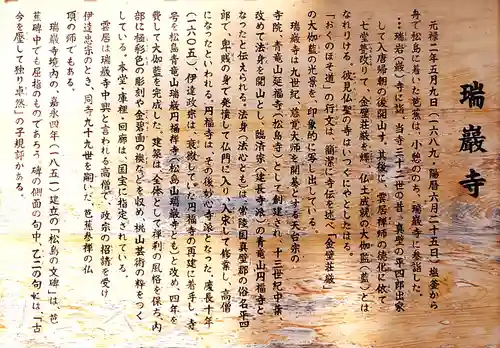 瑞巌寺
元禄二年五月九日（一六八九・陽暦六月二十五日）、塩釜から
舟で松島に着いた芭蕉は、小憩ののち、瑞巌寺に参詣した。
…瑞岩（巌）寺に詣。当寺三十二世の昔、真壁の平四郎出家
して入唐帰朝の後開山す。其後に、雲居禅師の徳化に依て
七堂甍改りて、金壁荘厳光を輝、仏土成就の大伽藍（藍）とは
なれりける。彼見仏聖の寺はいづくにやとしたはる。
「おくのほそ道」の行文は、簡潔に寺伝を述べ、金壁荘厳
の大伽藍の光景を、印象的に写し出している。
瑞巌寺は九世紀、慈覚大師を開基とする天台宗の
寺院、青龍山延福寺（松島寺）として創建され、十三世紀中葉、
改めて法身を開山とし、臨済宗（建長寺派）の青龍山円福寺と
なったと伝えられる。法身（法心とも）は、常陸国真壁郡の俗名平四
郎で、卑賎の身で発憤して仏門に入り、入宋して修業し、高僧
になったといわれる。円福寺は、その後妙心寺派となった。慶長十年
（一六〇五）、伊達政宗は、衰微していた円福寺の再建に着手し、寺
号を松島青龍山瑞巌円福禅寺（松島山瑞巌寺とも）と改め、四年を
費して大伽藍を完成した。建築は、全体として禅刹の風格を保ち、内
部に極彩色の彫刻や金碧画の襖などを収め、桃山芸術の粋をつく
している。本堂・庫裡・回廊は、国宝に指定されている。
雲居は瑞巌寺中興と言われる高僧で、政宗の招請を受け
伊達忠宗のとき、同寺九十九世を嗣いだ。芭蕉参禅の仏
頂の師でもある。
瑞巌寺境内の、嘉永四年（一八五一）建立の「松島の文碑」は、芭
蕉碑中でも屈指のものであろう。碑の側面の句中、乙二の句には「古
今を壓して独り卓然」の子規評がある。